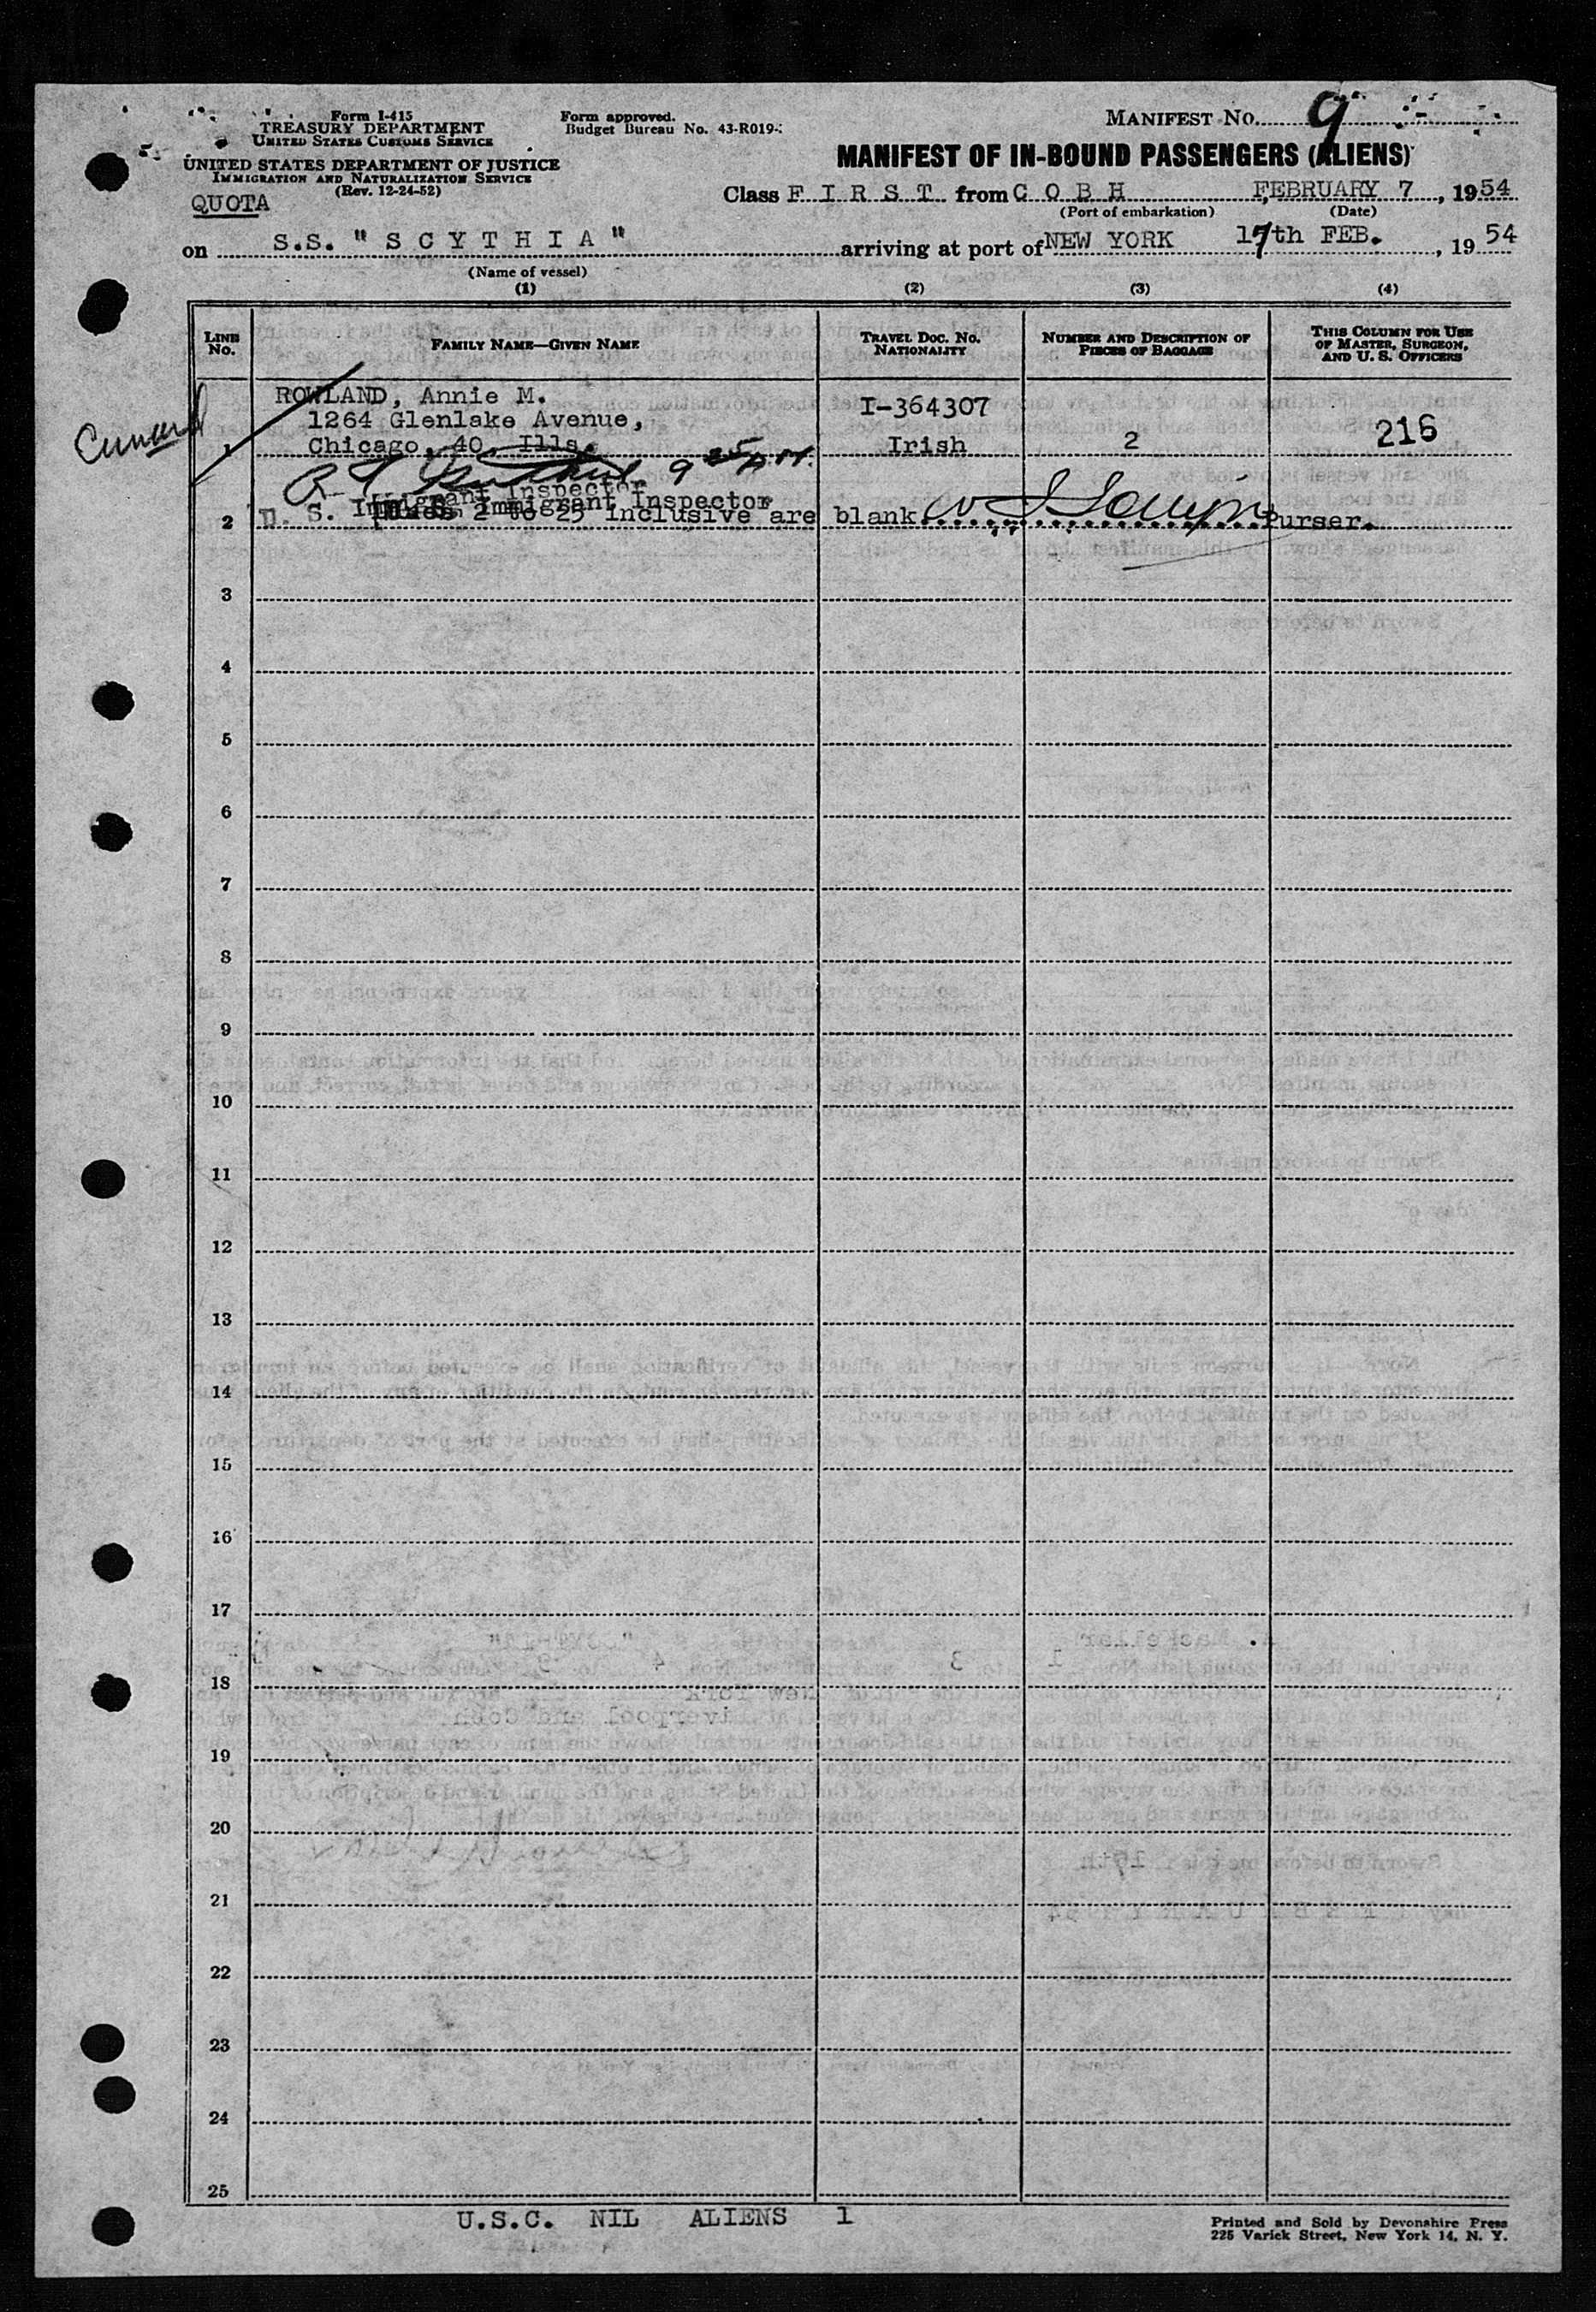 Form I-415
TREASURY DEPARTMENT
UNITED STATES CUSTOMS SERVICE
UNITED STATES DEPARTMENT OF JUSTICE
IMMIGRATION AND NATURALIZATION SERVICE
(Rev. 12-24-52)
QUOTA
Form approved.
Budget Bureau No. 43-R019-
MANIFEST NO. 9
MANIFEST OF IN-BOUND PASSENGERS (ALIENS)
Class F I R S T from C O B H FEBRUARY 7, 1954
(Port of embarkation) (Date)
on S.S. "S C Y T H I A" arriving at port of NEW YORK 17th FEB., 1954
(Name of vessel)
(1) (2) (3) (4)
LINE No. FAMILY NAME—GIVEN NAME TRAVEL DOC. NO. NATIONALITY NUMBER AND DESCRIPTION OF PIECES OF BAGGAGE THIS COLUMN FOR USE OF MASTER, SURGEON, AND U. S. OFFICERS
Cunard
ROWLAND, Annie M. I-364307
1264 Glenlake Avenue,
1 Chicago, 40, Ills. Irish 2 216
U. S. Immigrant Inspector
2 Lines 2 to 25 inclusive are blank Purser.
3
4
5
6
7
8
9
10
11
12
13
14
15
16
17
18
19
20
21
22
23
24
25
U.S.C. NIL ALIENS 1
Printed and Sold by Devonshire Press
225 Varick Street, New York 14, N. Y.